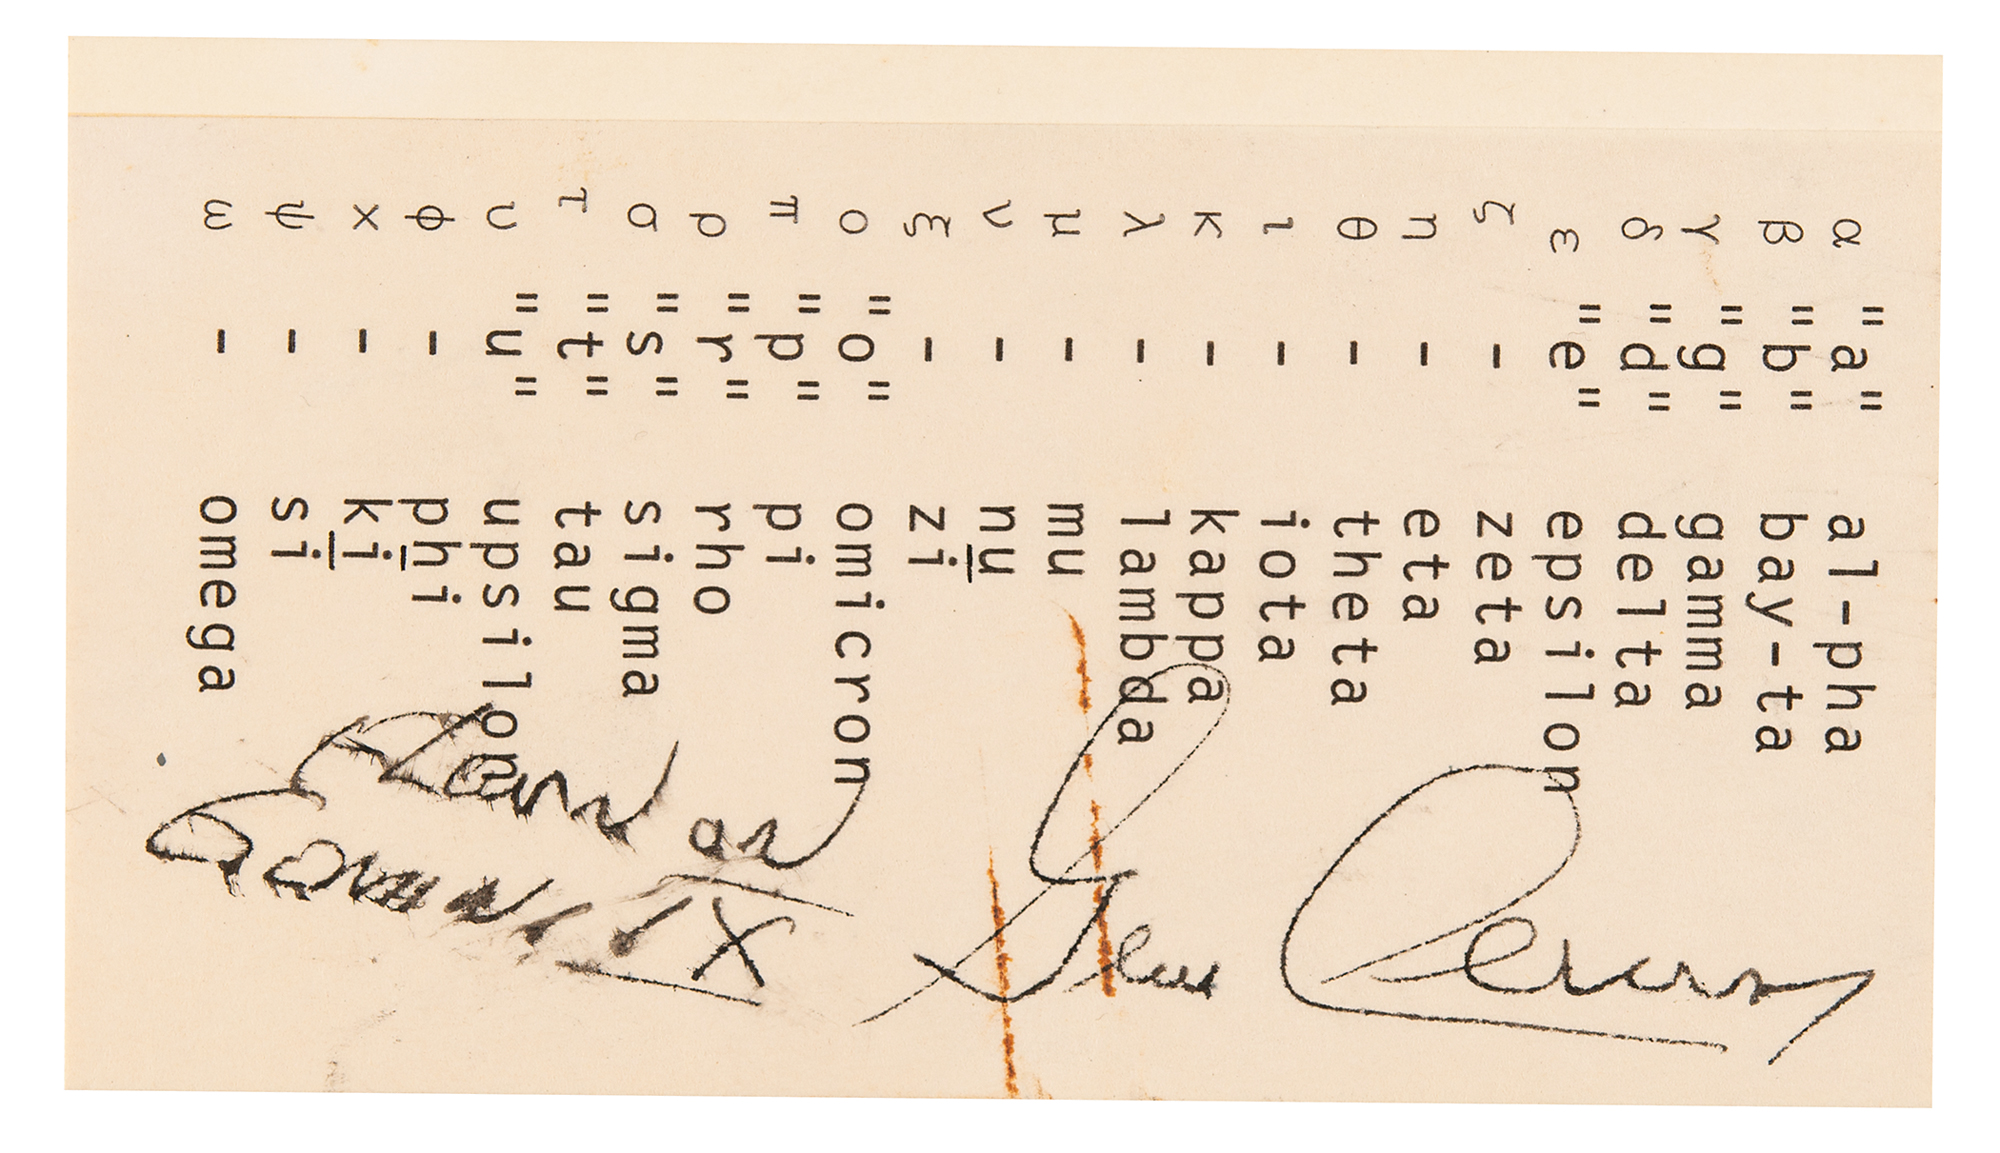 α "a" al-pha
β "b" bay-ta
γ "g" gamma
δ "d" delta
ε "e" epsilon
ζ - zeta
η - eta
θ - theta
ι - iota
κ - kappa
λ - lambda
μ - mu
ν - nu
ξ - zi
ο "o" omicron
π "p" pi
ρ "r" rho
σ "s" sigma
τ "t" tau
υ "u" upsilon
φ - phi
χ - ki
ψ - si
ω - omega
Flown on
Gemini IX
Gene Cernan